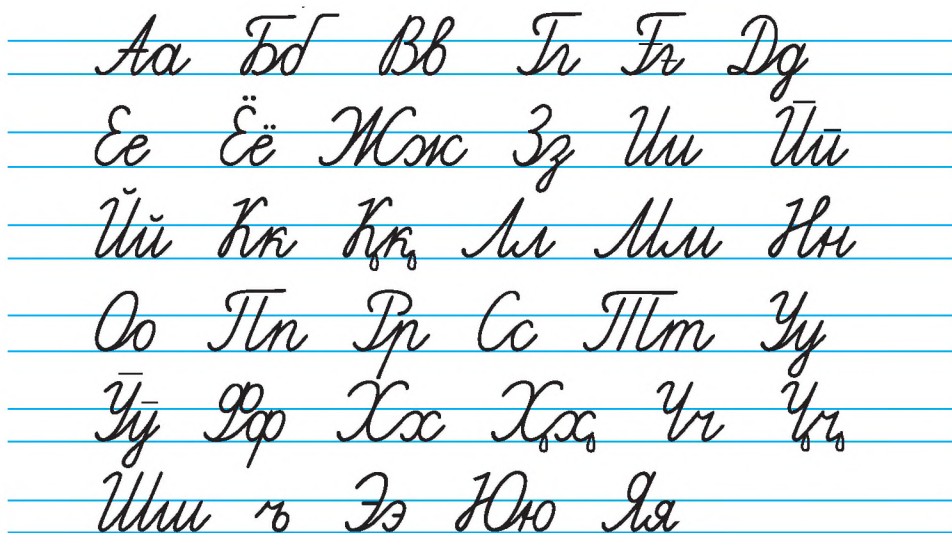 Аа Бб Вв Гг Ғғ Дд
Ее Ёё Жж Зз Ии Ӣӣ
Йй Кк Ққ Лл Мм Нн
Оо Пп Рр Сс Тт Уу
Ӯӯ Фф Хх Ҳҳ Чч Ҷҷ
Шш ъ Ээ Юю Яя